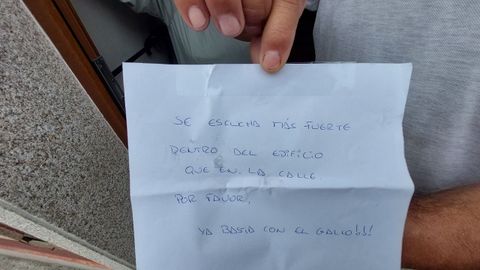 SE ESCUCHA MÁS FUERTE
DENTRO DEL EDIFICIO
QUE EN LA CALLE.
POR FAVOR,
YA BASTA CON EL GALLO!!!